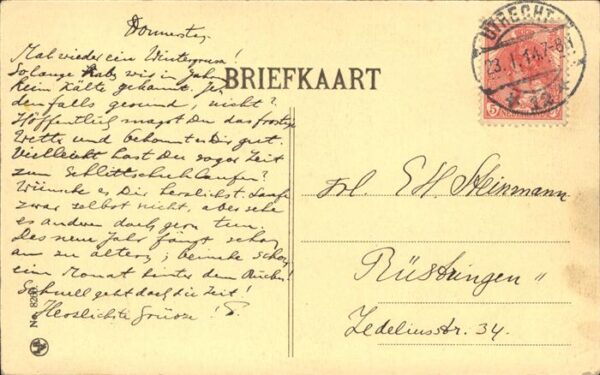 Donnerstag
Mal wieder ein Wintergruss!
Solange habt wir in Jahren
kein Kälte gekannt. Je-
denfalls gesund, nicht?
Höffentlich magst Du das frostige
Wetter und bekommt es Dir gut.
Vielleicht hast Du sogar Zeit
zum Schlittschuhlaufen?
Wünsche es Dir herzlichst. Laufe
zwar selbst nicht, aber sehe
es andern doch gern tun.
Das neue Jahr fängt schon
an zu altern; beinahe schon
ein Monat hinter dem Rücken!
Schnell geht doch die Zeit!
Herzlichste Grüsse!
BRIEFKAART
UTRECHT
23.1.14.7-8N
5
Frl. E.H. Steinmann
Rüstringen
Zedeliusstr. 34.